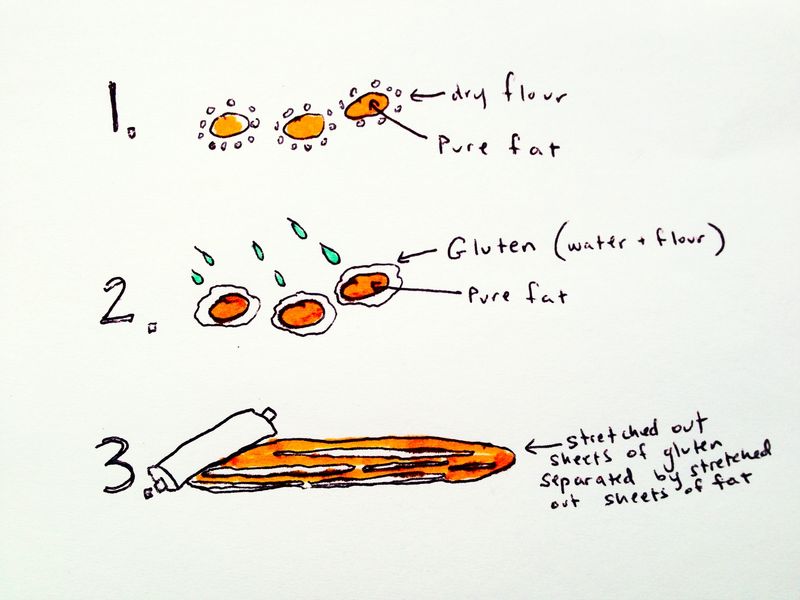 1.
dry flour
Pure fat
2.
Gluten (water + flour)
Pure fat
3.
stretched out
sheets of gluten
separated by stretched
out sheets of fat